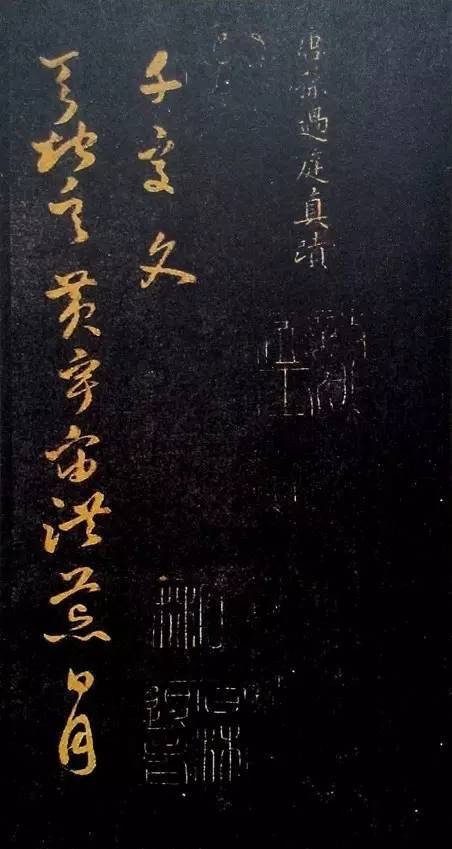 唐孫過庭真蹟
千字文
天地玄黃宇宙洪荒日月